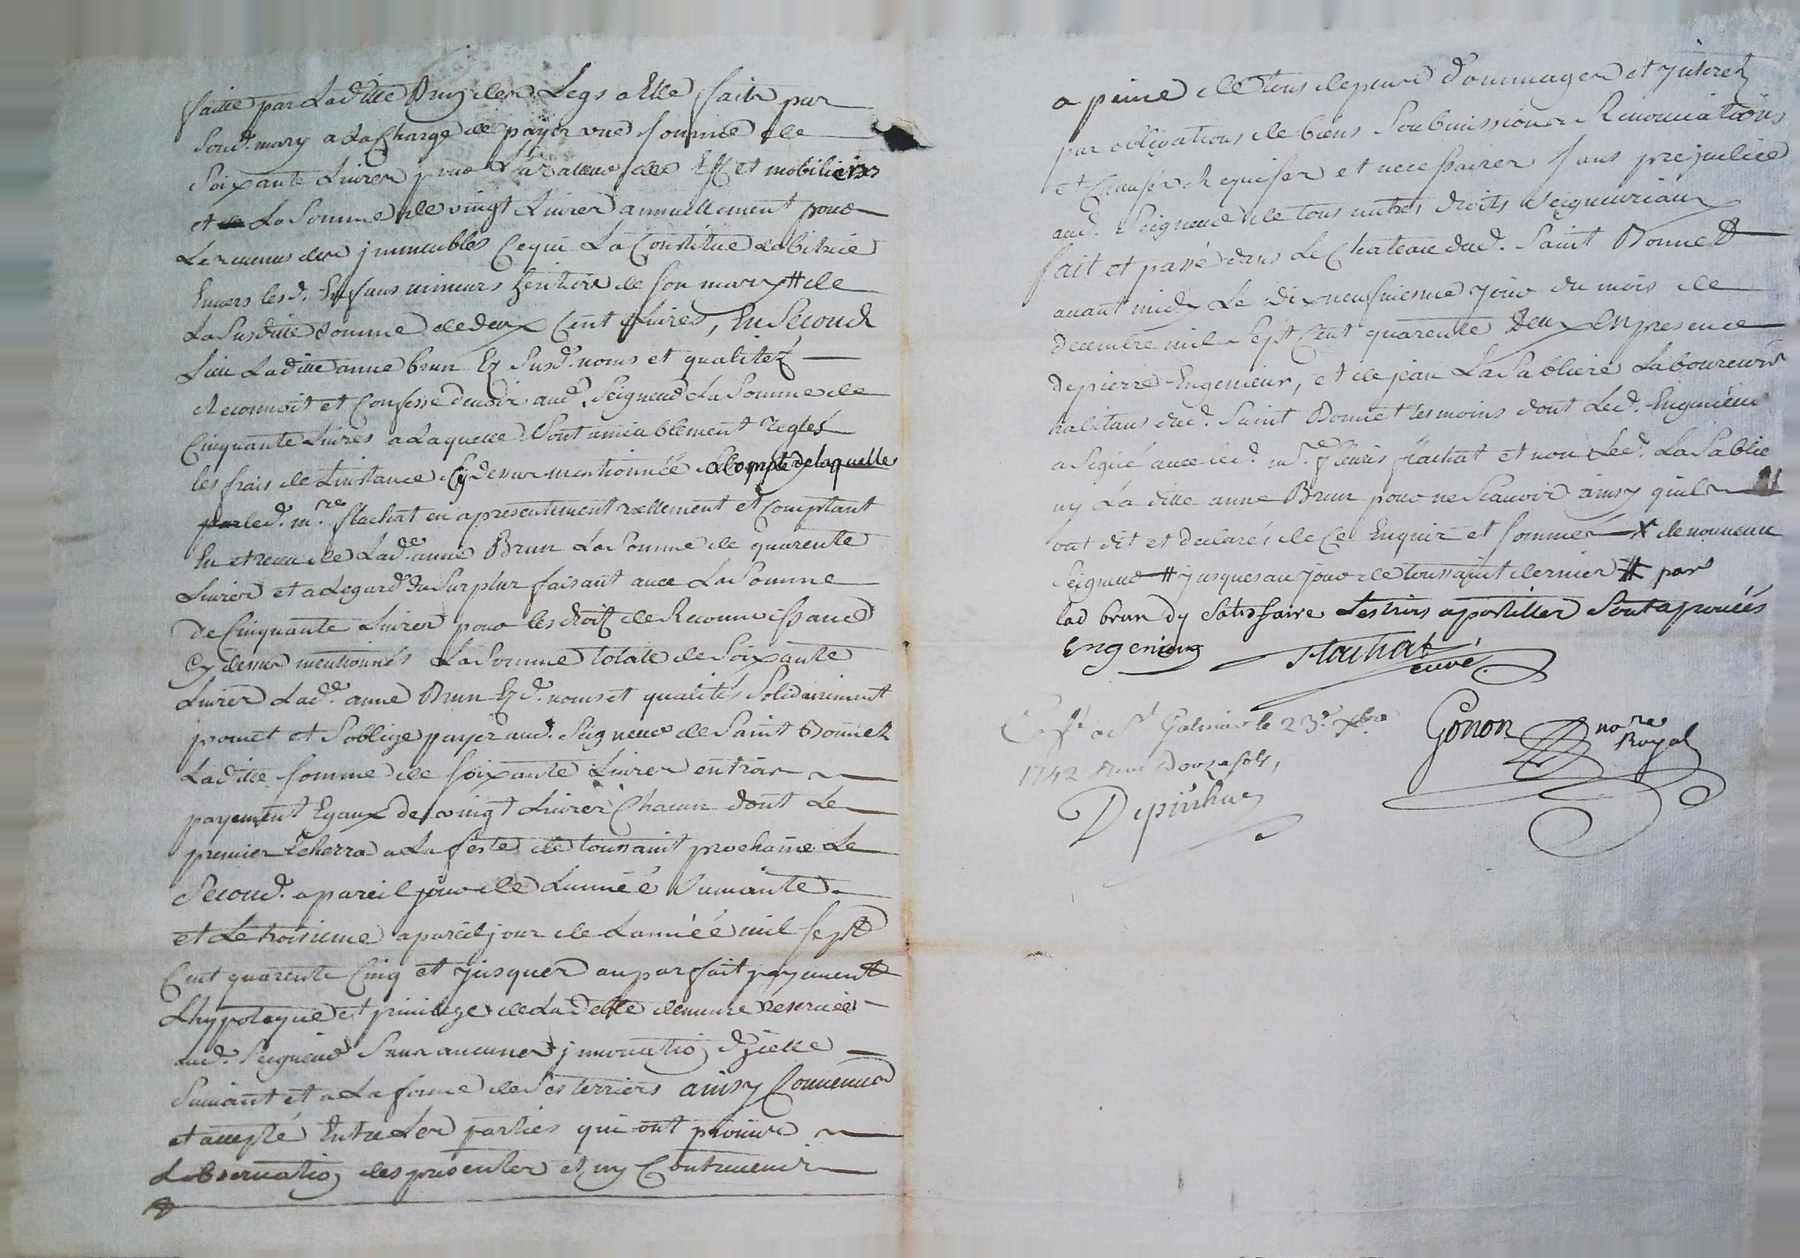 faitte par Laditte Brun des Legs a Elle faits par
Soud. mary a La Charge de payer une somme de
Soixante Livres pour La valeur des Eff et mobiliers
et La Somme de vingt Livres annuellement pour
Les immeubles Ce qui La Constitue debitrice
Envers lesd. Enfans mineurs heritiers de son mary # de
La Susditte Somme de deux Cent Livres, En Second
Lieu Laditte anne brun Ez Susd. noms et qualitéz
Reconnoit et Confesse devoir aud. Seigneur La Somme de
Cinquante Livres a Laquelle Sont amiablement regles
les frais de Linstance Cy Dessus mentionnée a Compte de laquelle
led. m.re flachat en a presentement reellement et Comptant
Eu et receu de Lad.e anne Brun La Somme de quarente
Livres et a Legard du Surplus faisant avec La Somme
De Cinquante Livres pour les droits de Reconnoissance
Cy dessus mentionnés La Somme totale de Soixante
Livres Lad.e anne Brun Ez d. noms et qualités Solidairement
promet et Soblige payer aud. Seigneur de Saint Bonnet
Laditte Somme de Soixante Livres en trois
payement Egaux de vingt Livres Chacun dont Le
premier Echerra a La feste de toussaint prochaine Le
Second. a pareil jour de Lannéé Suivante
et Le troisieme a pareil jour de Lannéé mil sept
Cent quarente Cinq et jusques au parfait payement
Lhypoteque et privilege de La Dette demeure reservéé
aud. Seigneur Sans aucunes innovatio, dJcelle
Suivant et a La forme de Ses terriers ainsy Convenu
et accepté Entre Les parties qui ont promis
Lobservatio, des presentes et ny Contrevenir
a peine de tous depens Dommages et Jnterets
par obligations de biens Soubmissions Renonciations
et Clauses Requises et necessaires Sans prejudice
aud. Seigneur de tous autres droits Seigneuriaux
fait et passé dans Le Chateau dud. Saint Bonnet
avant midy Le Dix neufvieme Jour du mois de
decembre mil Sept Cent quarente deux En presence
de pierre Engenieux, et de jean La Sabliere Laboureurs
habitans dud. Saint Bonnet tesmoins dont Led. Engenieux
a Signé avec led. m.re fleuris flachat et non Led. La Sablie
ny La ditte anne Brun pour ne Scavoir ainsy quils
ont dit et declarés de Ce Enquis et Sommés X de nouveau
Seigneur # jusques au jour de toussaint dernier # par
lad brun dy Satisfaire Les trois apostilles Sont aprouéés
Engenieux Flachat
curé
Gonon no.re
Royal
Con.lé a S.t Galmier le 23.e Xbre
1742 Reçu Douze Sols,
Depinhac